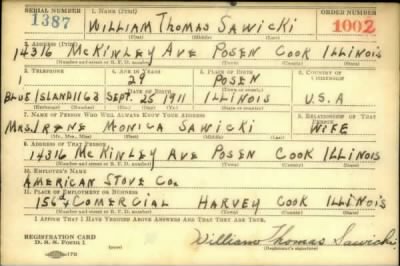 SERIAL NUMBER 1. NAME (Print) ORDER NUMBER
1387 WILLIAM THOMAS SAWICKI 1002
(First) (Middle) (Last)
2. ADDRESS (Print)
14316 McKINLEY AVE POSEN COOK ILLINOIS
3. TELEPHONE 4. AGE IN YEARS 5. PLACE OF BIRTH 6. COUNTRY OF CITIZENSHIP
29 POSEN
DATE OF BIRTH
BLUE ISLAND 1163 SEPT. 25 1911 ILLINOIS U.S.A
(Exchange) (Number) (Mo.) (Day) (Yr.) (State or country)
7. NAME OF PERSON WHO WILL ALWAYS KNOW YOUR ADDRESS 8. RELATIONSHIP OF THAT PERSON
MRS. IRENE MONICA SAWICKI WIFE
(Mr., Mrs., Miss) (First) (Middle) (Last)
9. ADDRESS OF THAT PERSON
14316 McKINLEY AVE POSEN COOK ILLINOIS
10. EMPLOYER'S NAME
AMERICAN STOVE CO.
11. PLACE OF EMPLOYMENT OR BUSINESS
156th COMERCIAL HARVEY COOK ILLINOIS
(Street and number or R. F. D. number) (Town) (County) (State)
I AFFIRM THAT I HAVE VERIFIED ABOVE ANSWERS AND THAT THEY ARE TRUE.
REGISTRATION CARD
D. S. S. Form 1
William Thomas Sawicki
(Registrant's signature)